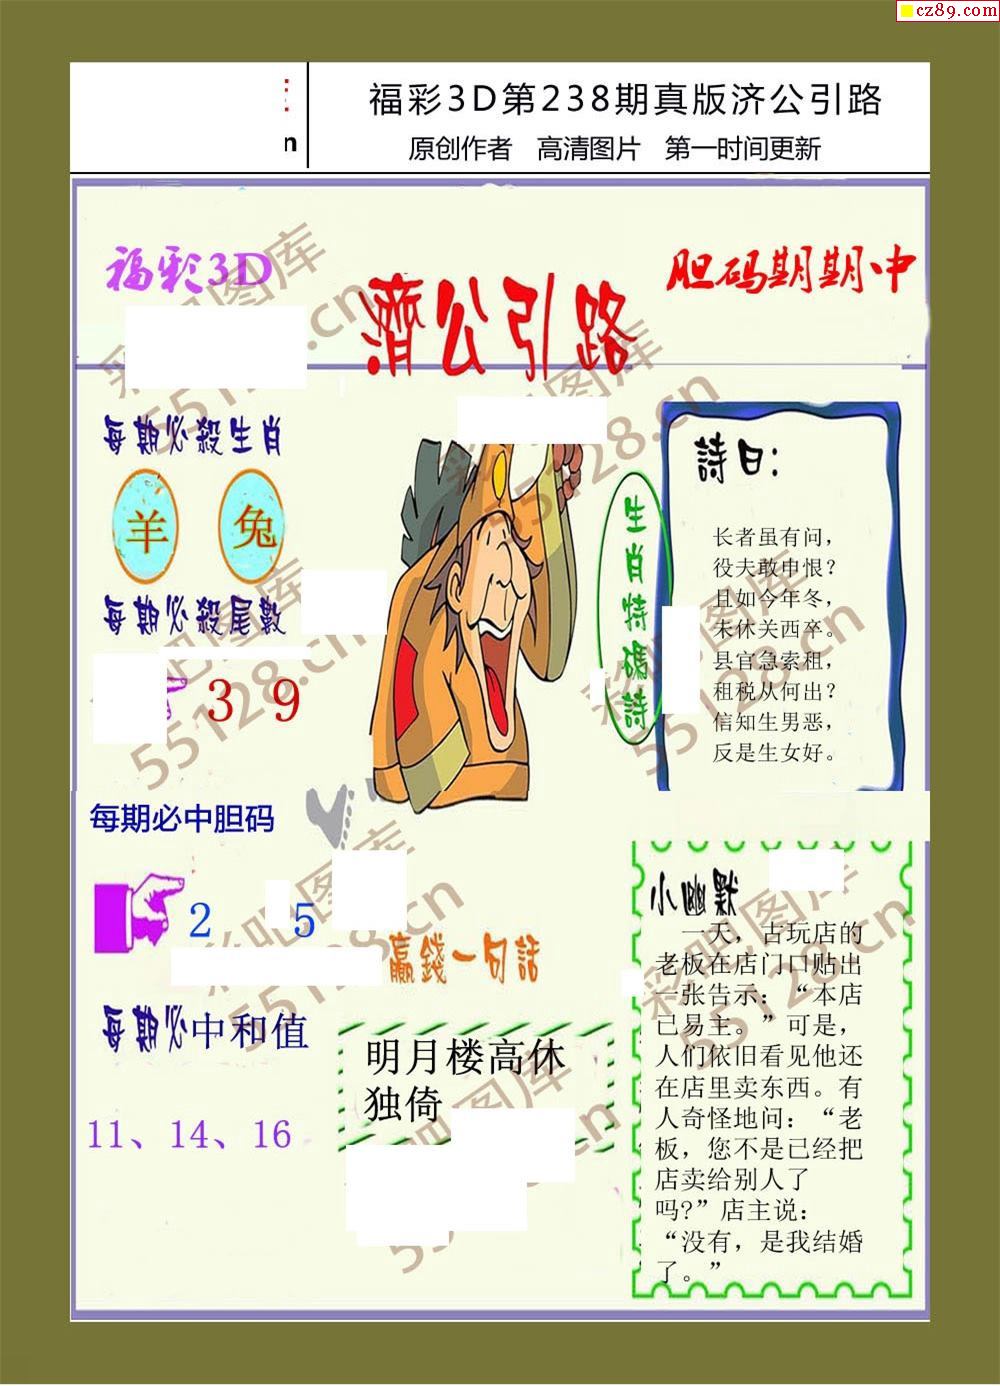 cz89.com
n
福彩3D第238期真版济公引路
原创作者 高清图片 第一时间更新
福彩3D
濟公引路
胆码期期中
每期必殺生肖
羊 兔
每期必殺尾數
3 9
每期必中胆码
2 5
每期必中和值
11、14、16
生肖特碼詩
詩曰:
长者虽有问，
役夫敢申恨？
且如今年冬，
未休关西卒。
县官急索租，
租税从何出？
信知生男恶，
反是生女好。
赢錢一句話
明月楼高休
独倚
小幽默
一天，古玩店的
老板在店门口贴出
一张告示：“本店
已易主。”可是，
人们依旧看见他还
在店里卖东西。有
人奇怪地问：“老
板，您不是已经把
店卖给别人了
吗?”店主说：
“没有，是我结婚
了。”
彩吧图库
55128.cn
彩吧图库
55128.cn
彩吧图库
55128.cn
彩吧图库
55128.cn
彩吧图库
55128.cn
彩吧图库
55128.cn